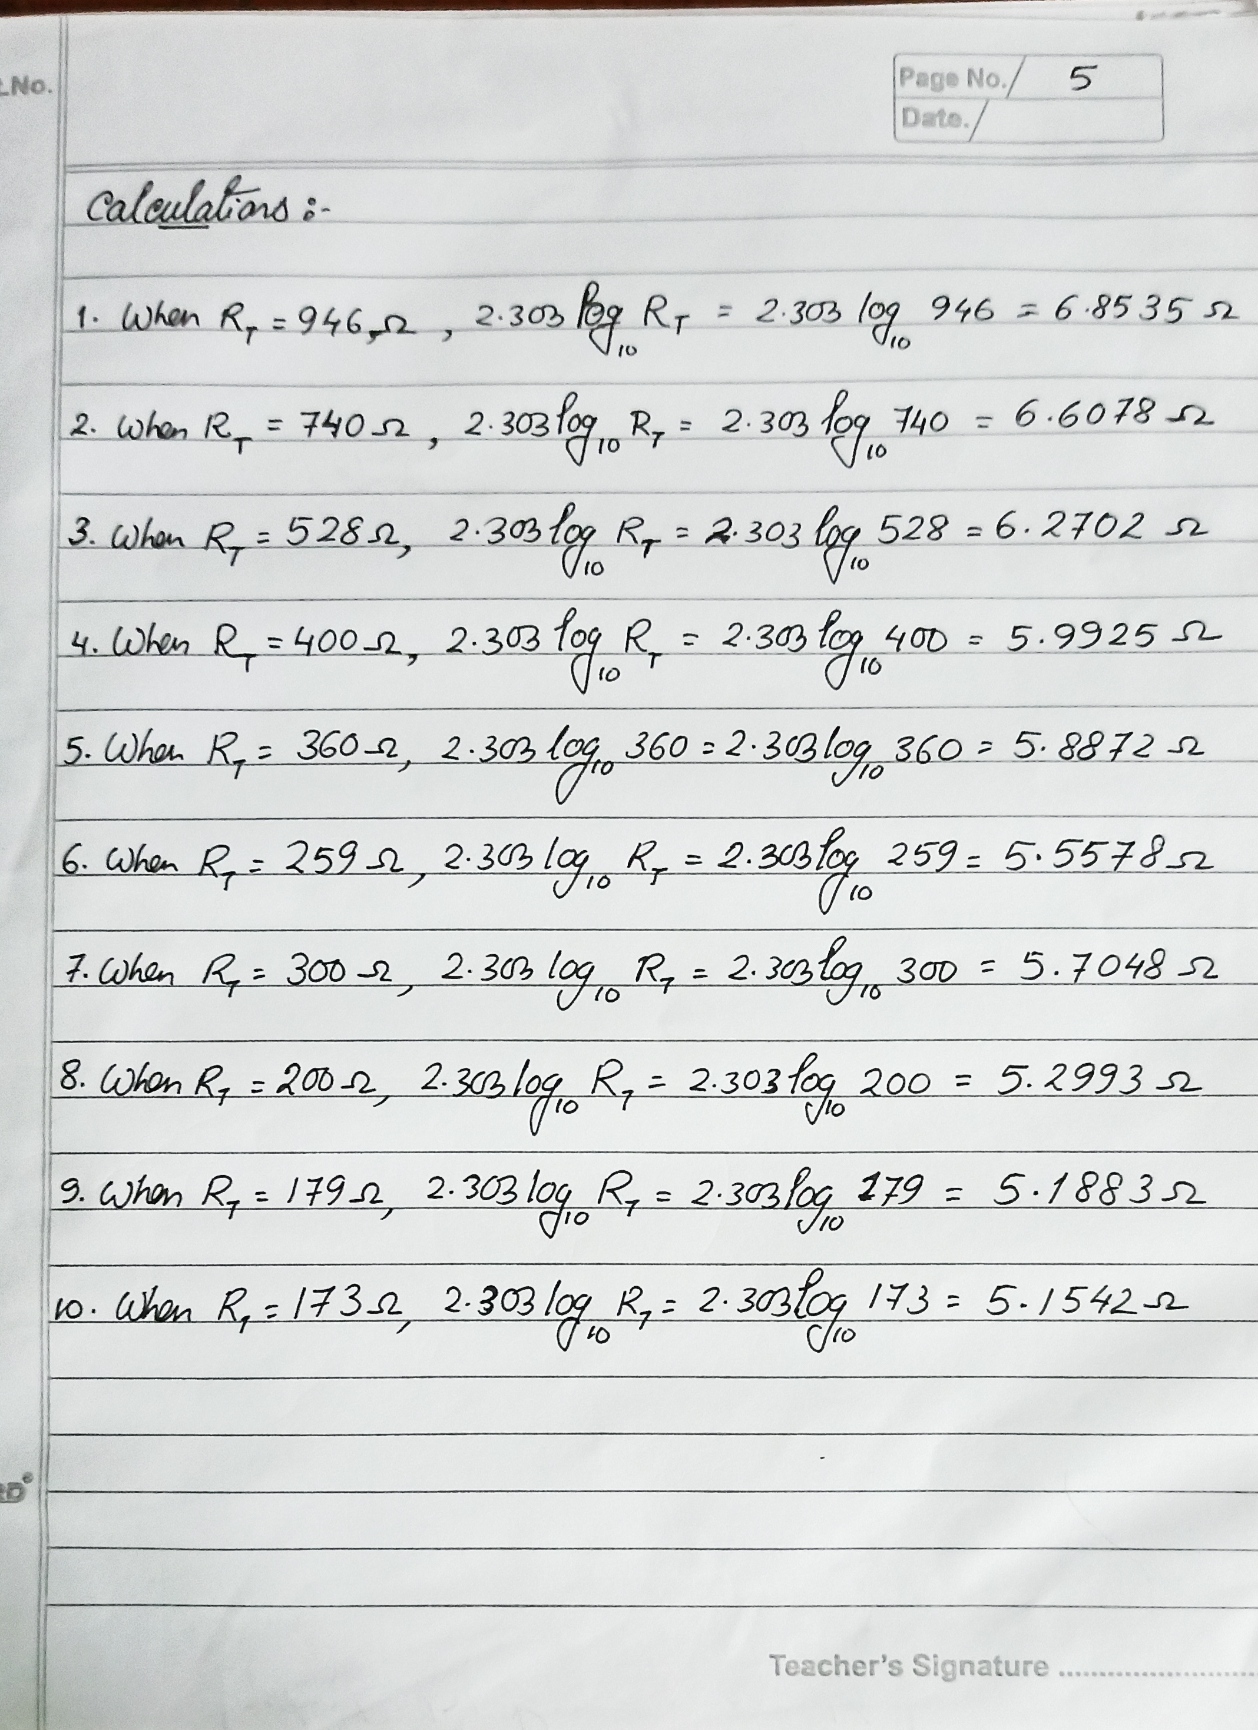 .No.
Page No./ 5
Date./
Calculations :-
1. When R_T = 946 Ω , 2.303 log₁₀ R_T = 2.303 log₁₀ 946 = 6.8535 Ω
2. When R_T = 740 Ω , 2.303 log₁₀ R_T = 2.303 log₁₀ 740 = 6.6078 Ω
3. When R_T = 528 Ω, 2.303 log₁₀ R_T = 2.303 log₁₀ 528 = 6.2702 Ω
4. When R_T = 400 Ω, 2.303 log₁₀ R_T = 2.303 log₁₀ 400 = 5.9925 Ω
5. When R_T = 360 Ω, 2.303 log₁₀ 360 = 2.303 log₁₀ 360 = 5.8872 Ω
6. When R_T = 259 Ω, 2.303 log₁₀ R_T = 2.303 log₁₀ 259 = 5.5578 Ω
7. When R_T = 300 Ω, 2.303 log₁₀ R_T = 2.303 log₁₀ 300 = 5.7048 Ω
8. When R_T = 200 Ω, 2.303 log₁₀ R_T = 2.303 log₁₀ 200 = 5.2993 Ω
9. When R_T = 179 Ω, 2.303 log₁₀ R_T = 2.303 log₁₀ 179 = 5.1883 Ω
10. When R_T = 173 Ω, 2.303 log₁₀ R_T = 2.303 log₁₀ 173 = 5.1542 Ω
Teacher's Signature ........................